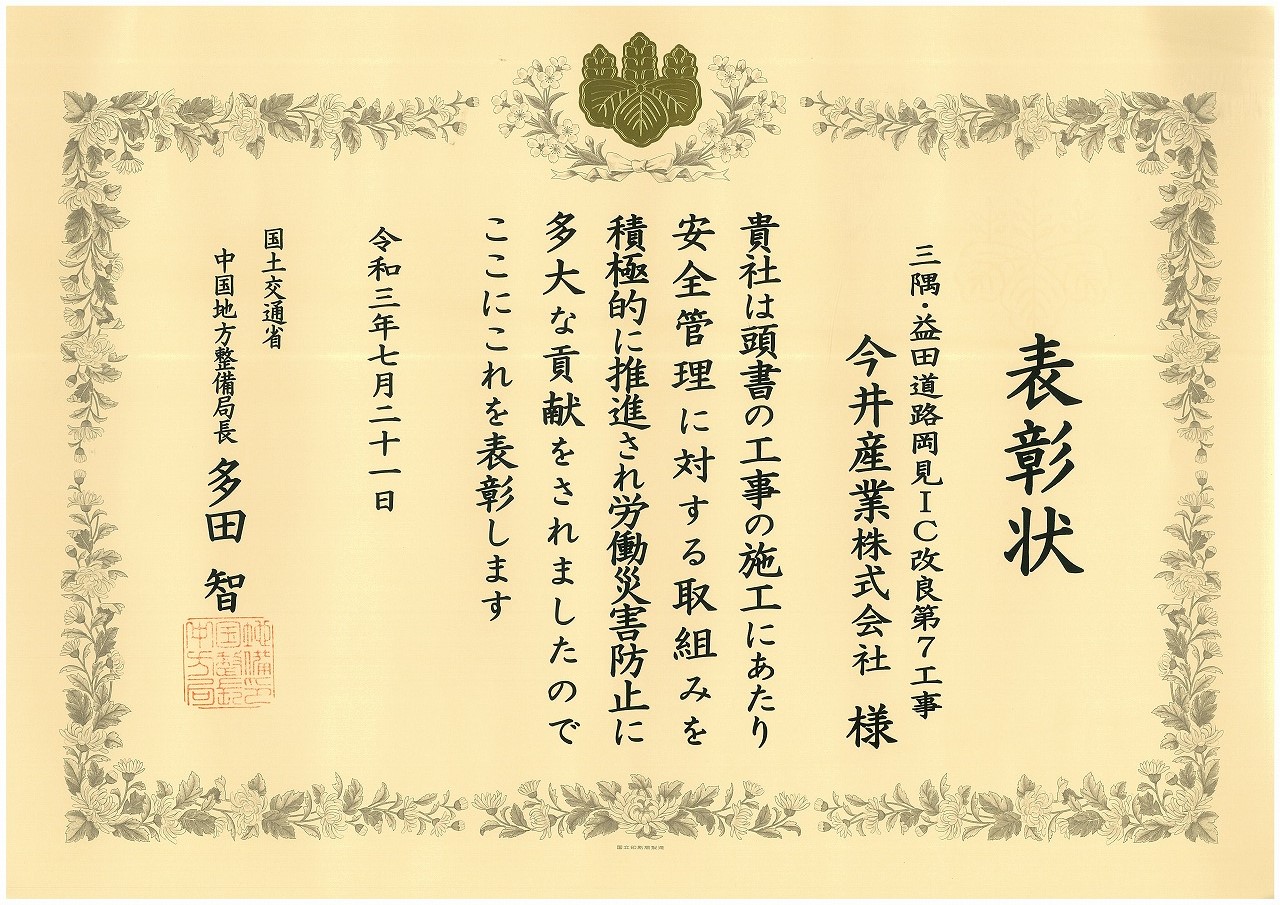 表彰状
三隅・益田道路岡見IC改良第7工事
今井産業株式会社 様
貴社は頭書の工事の施工にあたり
安全管理に対する取組みを
積極的に推進され労働災害防止に
多大な貢献をされましたので
ここにこれを表彰します
令和三年七月二十一日
国土交通省
中国地方整備局長 多田 智
国立印刷局製造